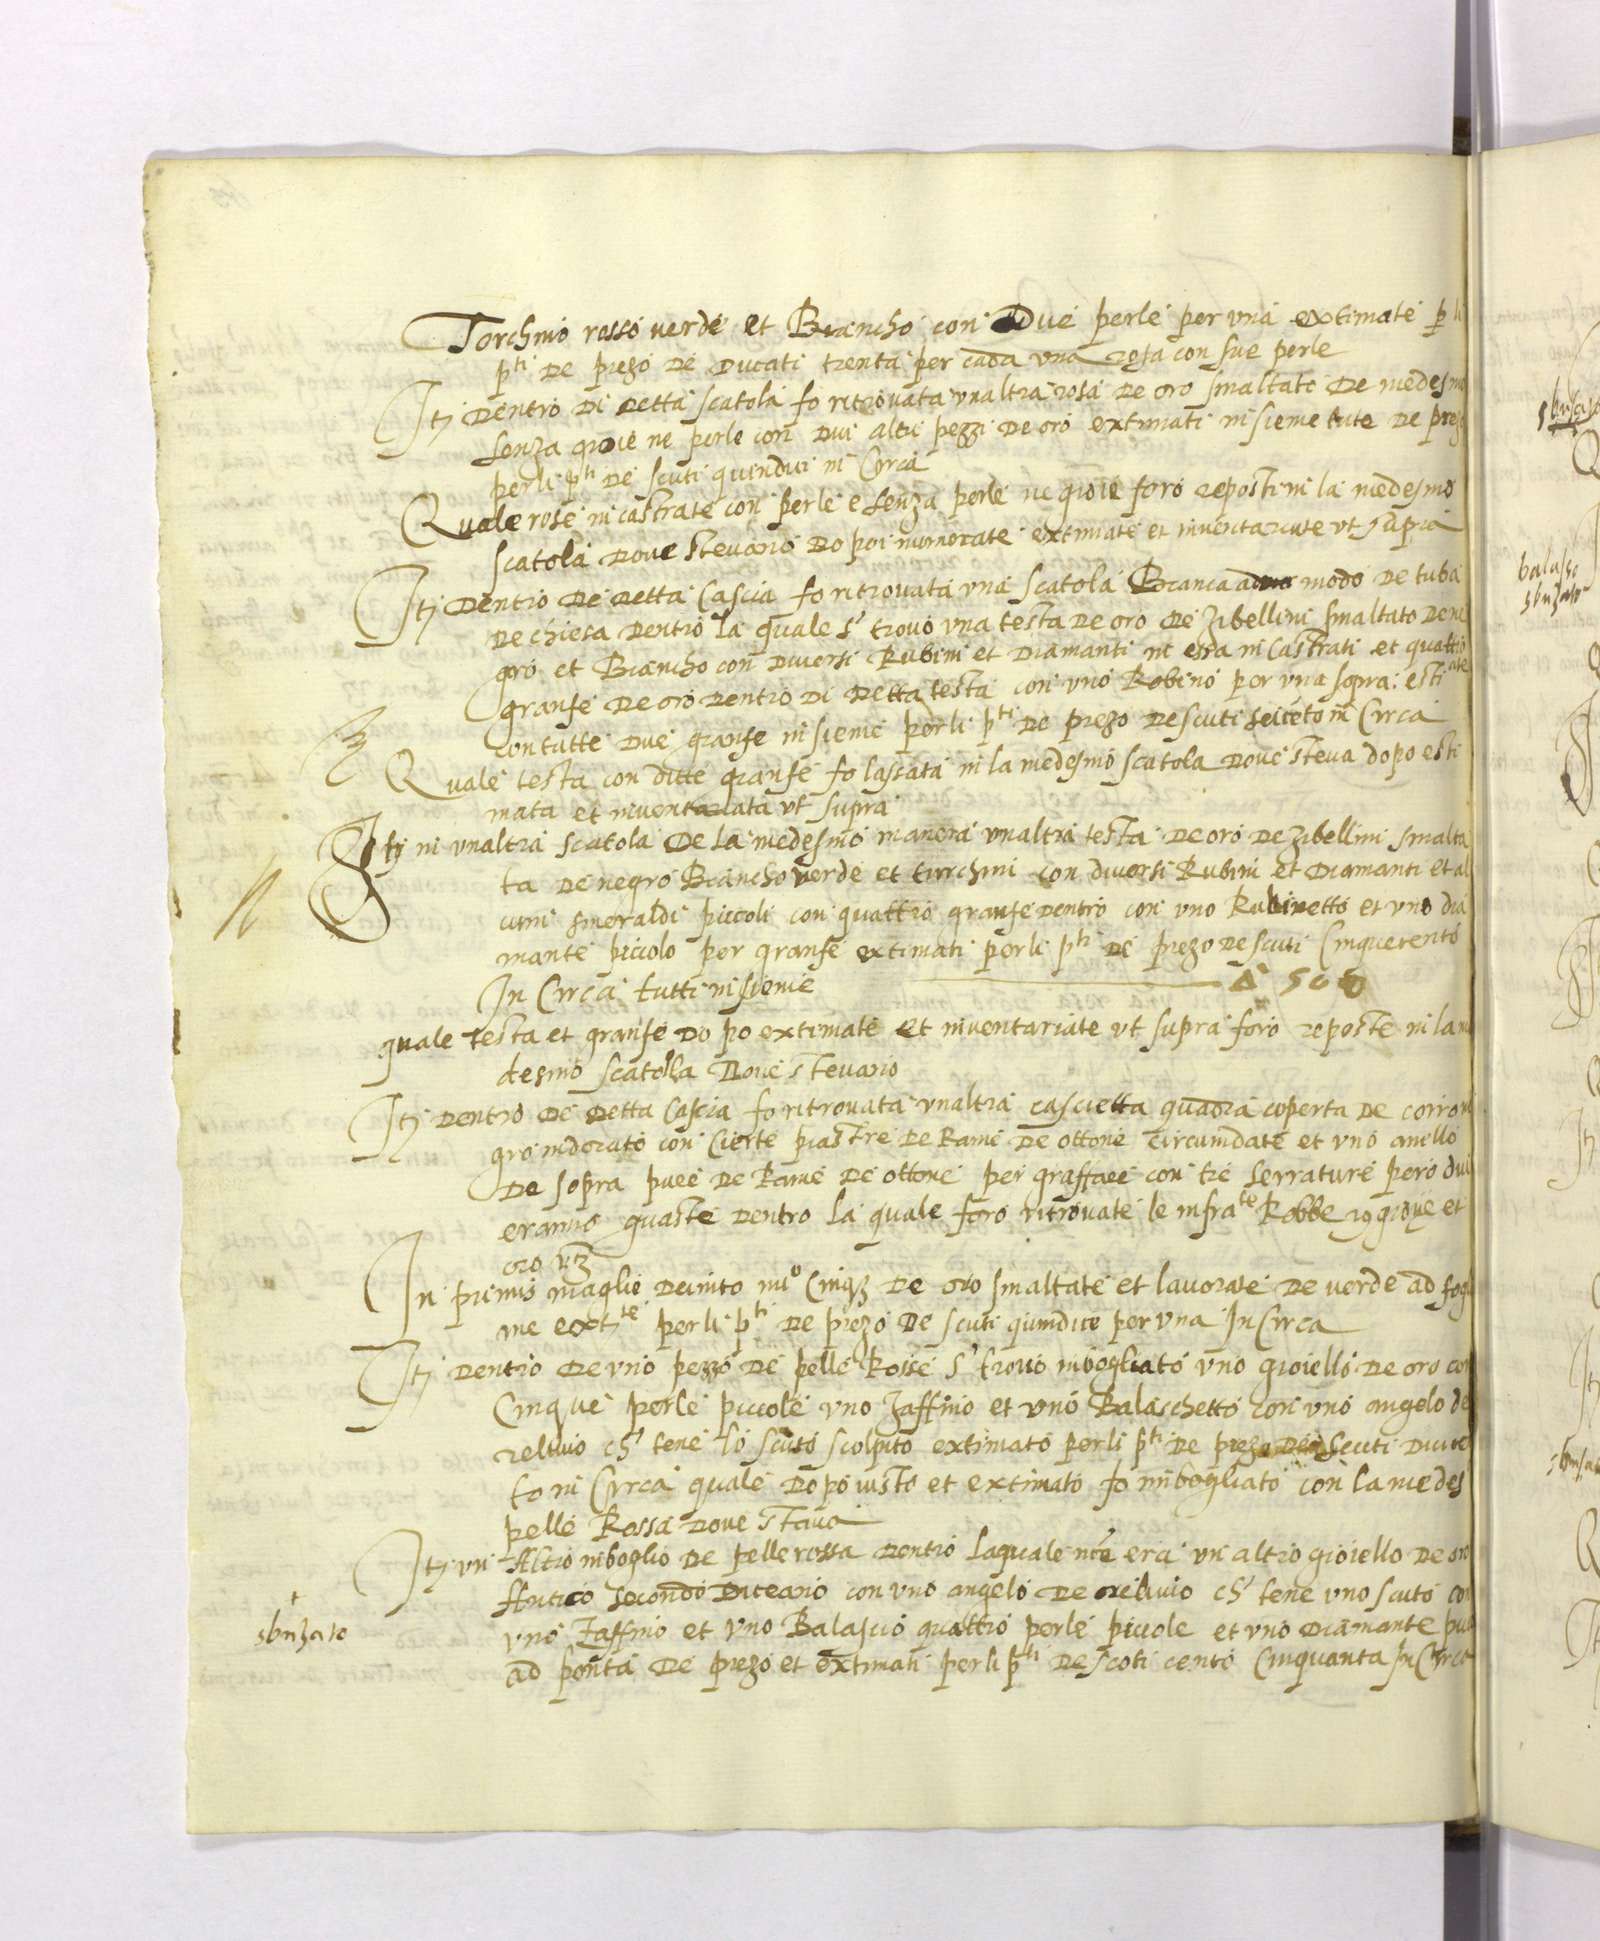 Torchino rosso verde et Biancho con Due perle per una extimate p li
p^ti De prezo De Ducati trenta per cada una rosa con sue perle
Itj Dentro Di Detta scatola fo ritrovata unaltra rosa De oro smaltato De medesmo
senza gioie ne perle con Dui altri pezzi De oro extimati insieme tute De prezo
per li p^ti De scuti quindici in Circa
Quale rose incastrate con perle e senza perle ne gioie foro reposti in la medesmo
scatola Dove stevano Do poi numerate extimate et inventariate ut supra
Itj Dentro De Detta Cascia fo ritrovata una scatola Bianca ad modo De tuba
De chiesa Dentro la quale s' trovo una testa De oro De Zibellini smaltato De ne
gro et Biancho con Diversi Rubini et Diamanti in essa inCastrati et quattro
granfe De oro Dentro Di Detta testa con uno Robino per una sopra: esti^ate
con tutte Due granfe insieme per li p^ti De prezo De scuti seiceto in Circa
Quale testa con ditte granfe fo lassata in la medesmo scatola Dove steva dopo esti
mata et inventariata ut supra
Itj in unaltra scatola De la medesmo manera unaltra testa De oro De Zibellini smalta
ta De negro Biancho verde et turchini con diversi Rubini et Diamanti et al
cuni smeraldi piccoli con quattro granfe Dentro con uno Rubinetto et uno dia
mante piccolo per granfe extimati per li p^ti De prezo De scuti Cinquecento
In Circa tutti insieme 500
quale testa et granfe Do po extimate et inventariate ut supra foro reposte in la me
desmo scatolla Dove stevano
Itj Dentro De Detta Cascia fo ritrovata unaltra cascietta quadra coperta De coiro ne
gro indorato con Cierte piastre De Rame De ottone circumdate et uno anello
De sopra pure De Rame De ottone per graffare con tre serrature pero dui
eranno guaste Dentro la quale foro ritrovate le infra^te Robbe gioye et
oro vz
In primis maglie Deinito nu^o Cinq3 De oro smaltate et lavorate De verde ad fogl
me ext^te per li p^ti De prezo De scuti quindice per una In Circa
Itj Dentro De uno pezzo De pelle Rosse s' trovo inbogliato uno gioiello De oro con
Cinque perle piccole uno Zaffino et uno Balaschetto con uno angelo de
relivio ch' tene lo scuto scolpito extimato per li p^ti De prezo De Scuti Ducen
to in Circa quale Dopo visto et extimato fo inbogliato con la medes
pelle Rossa Dove stava
Itj un Altro inboglio De pelle rossa Dentro la quale nce era un altro gioiello De oro
Antico secondo Diceano con uno angelo De relivio ch' tene uno scuto con
sbuzato
uno Zaffino et uno Balascio quattro perle piccole et uno Diamante
ad ponta De prezo et extimati per li p^ti De scoti cento Cinquanta In Circa
sbuzato
balasso
sbuzato